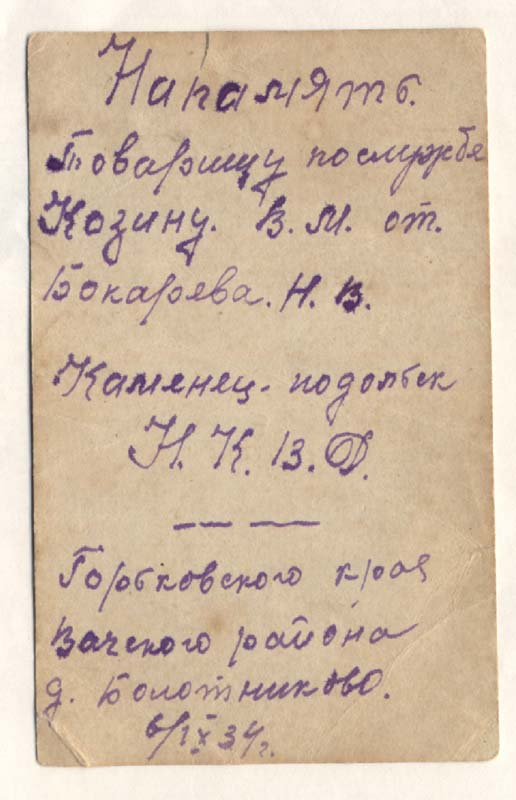 На память.
Товарищу по службе
Козину. В. М. от.
Бокарева. Н. В.
Каменец-подольск
Н. К. В. Д.
Горьковского края
Вачского района
д. Болотниково.
6/IX 34г.